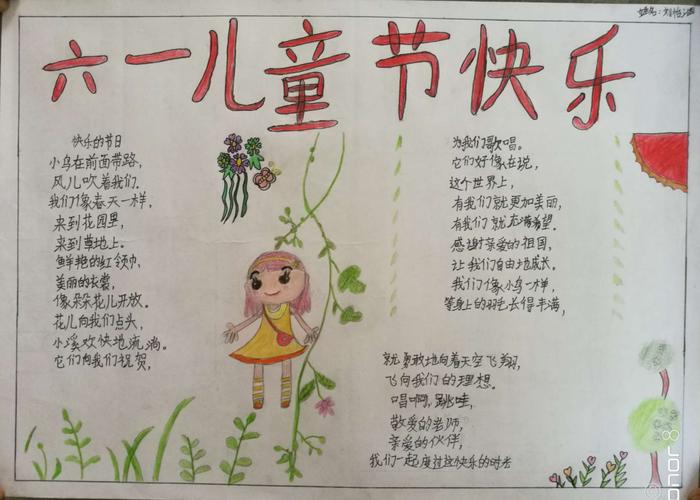 姓名:刘怡
六一儿童节快乐
快乐的节日
小鸟在前面带路,
风儿吹着我们.
我们像春天一样,
来到花园里,
来到草地上。
鲜艳的红领巾,
美丽的衣裳,
像朵朵花儿开放。
花儿向我们点头,
小溪欢快地流淌。
它们向我们祝贺,
为我们歌唱。
它们好像在说,
这个世界上,
有我们就更加美丽,
有我们就充满希望。
感谢亲爱的祖国,
让我们自由地成长。
我们像小鸟一样,
等身上的羽毛长得丰满,
就勇敢地向着天空飞翔,
飞向我们的理想。
唱啊,跳哇,
敬爱的老师,
亲爱的伙伴,
我们一起度过这快乐的时光
honor 8